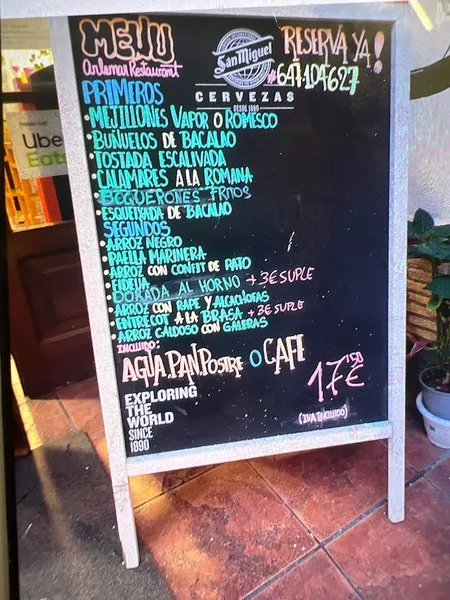 MENU
Arlemar Restaurant
San Miguel
CERVEZAS
DESDE 1890
RESERVA YA!
#647104627
Uber
Eats
PRIMEROS
• MEJILLONES VAPOR O ROMESCO
• BUÑUELOS DE BACALAO
• TOSTADA ESCALIVADA
• CALAMARES A LA ROMANA
• BOQUERONES FRITOS
• ESQUEIXADA DE BACALAO
SEGUNDOS
• ARROZ NEGRO
• PAELLA MARINERA
• ARROZ CON CONFIT DE PATO
• FIDEUA
• DORADA AL HORNO +3€ SUPLE
• ARROZ CON RAPE Y ALCACHOFAS
• ENTRECOT A LA BRASA +3€ SUPLE
• ARROZ CALDOSO CON GALERAS
INCLUIDO:
AGUA, PAN, POSTRE O CAFE
17'50€
(IVA INCLUIDO)
EXPLORING
THE
WORLD
SINCE
1890